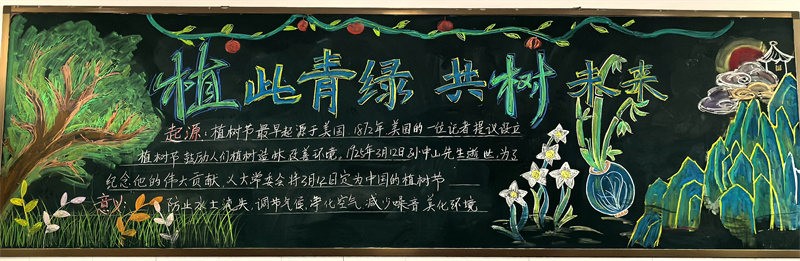 植此青绿 共树未来
起源:植树节最早起源于美国,1872年,美国的一位记者提议设立
植树节鼓励人们植树造林改善环境。1925年3月12日孙中山先生逝世,为了
纪念他的伟大贡献,人大常委会将3月12日定为中国的植树节
意义:防止水土流失、调节气侯、净化空气,减少噪音,美化环境